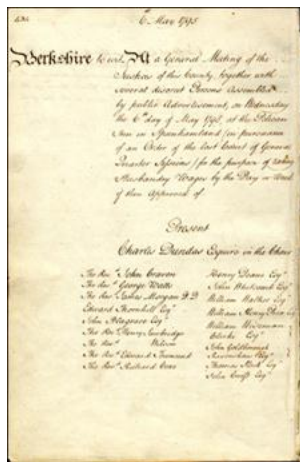 434
6 May 1795
Berkshire to wit. At a General Meeting of the
Justices of this County, together with
several discreet Persons Assembled
by public Advertisement, on Wednesday
the 6th day of May 1795, at the Pelican
Inn in Speenhamland (in pursuance
of an Order of the last Court of General
Quarter Sessions) for the purpose of rating
Husbandry Wages by the Day or Week
if then Approved of.
Present
Charles Dundas Esquire in the Chair
The Revd John Craven
The Revd George Watts
The Revd James Morgan D.D
Edward Thornhill Esqr
John Esqr
The Revd Henry Sawbridge
The Revd Wilson
The Revd Edward Townsend
The Revd Richard Coxe
Henry Deane Esqr
John Blackwell Esqr
William Walker Esqr
William Henry Price Esqr
William Wiseman
Clarke Esqr
John Goldbrough
Ravenshaw Esqr
Thomas Esqr
John Croft Esqr